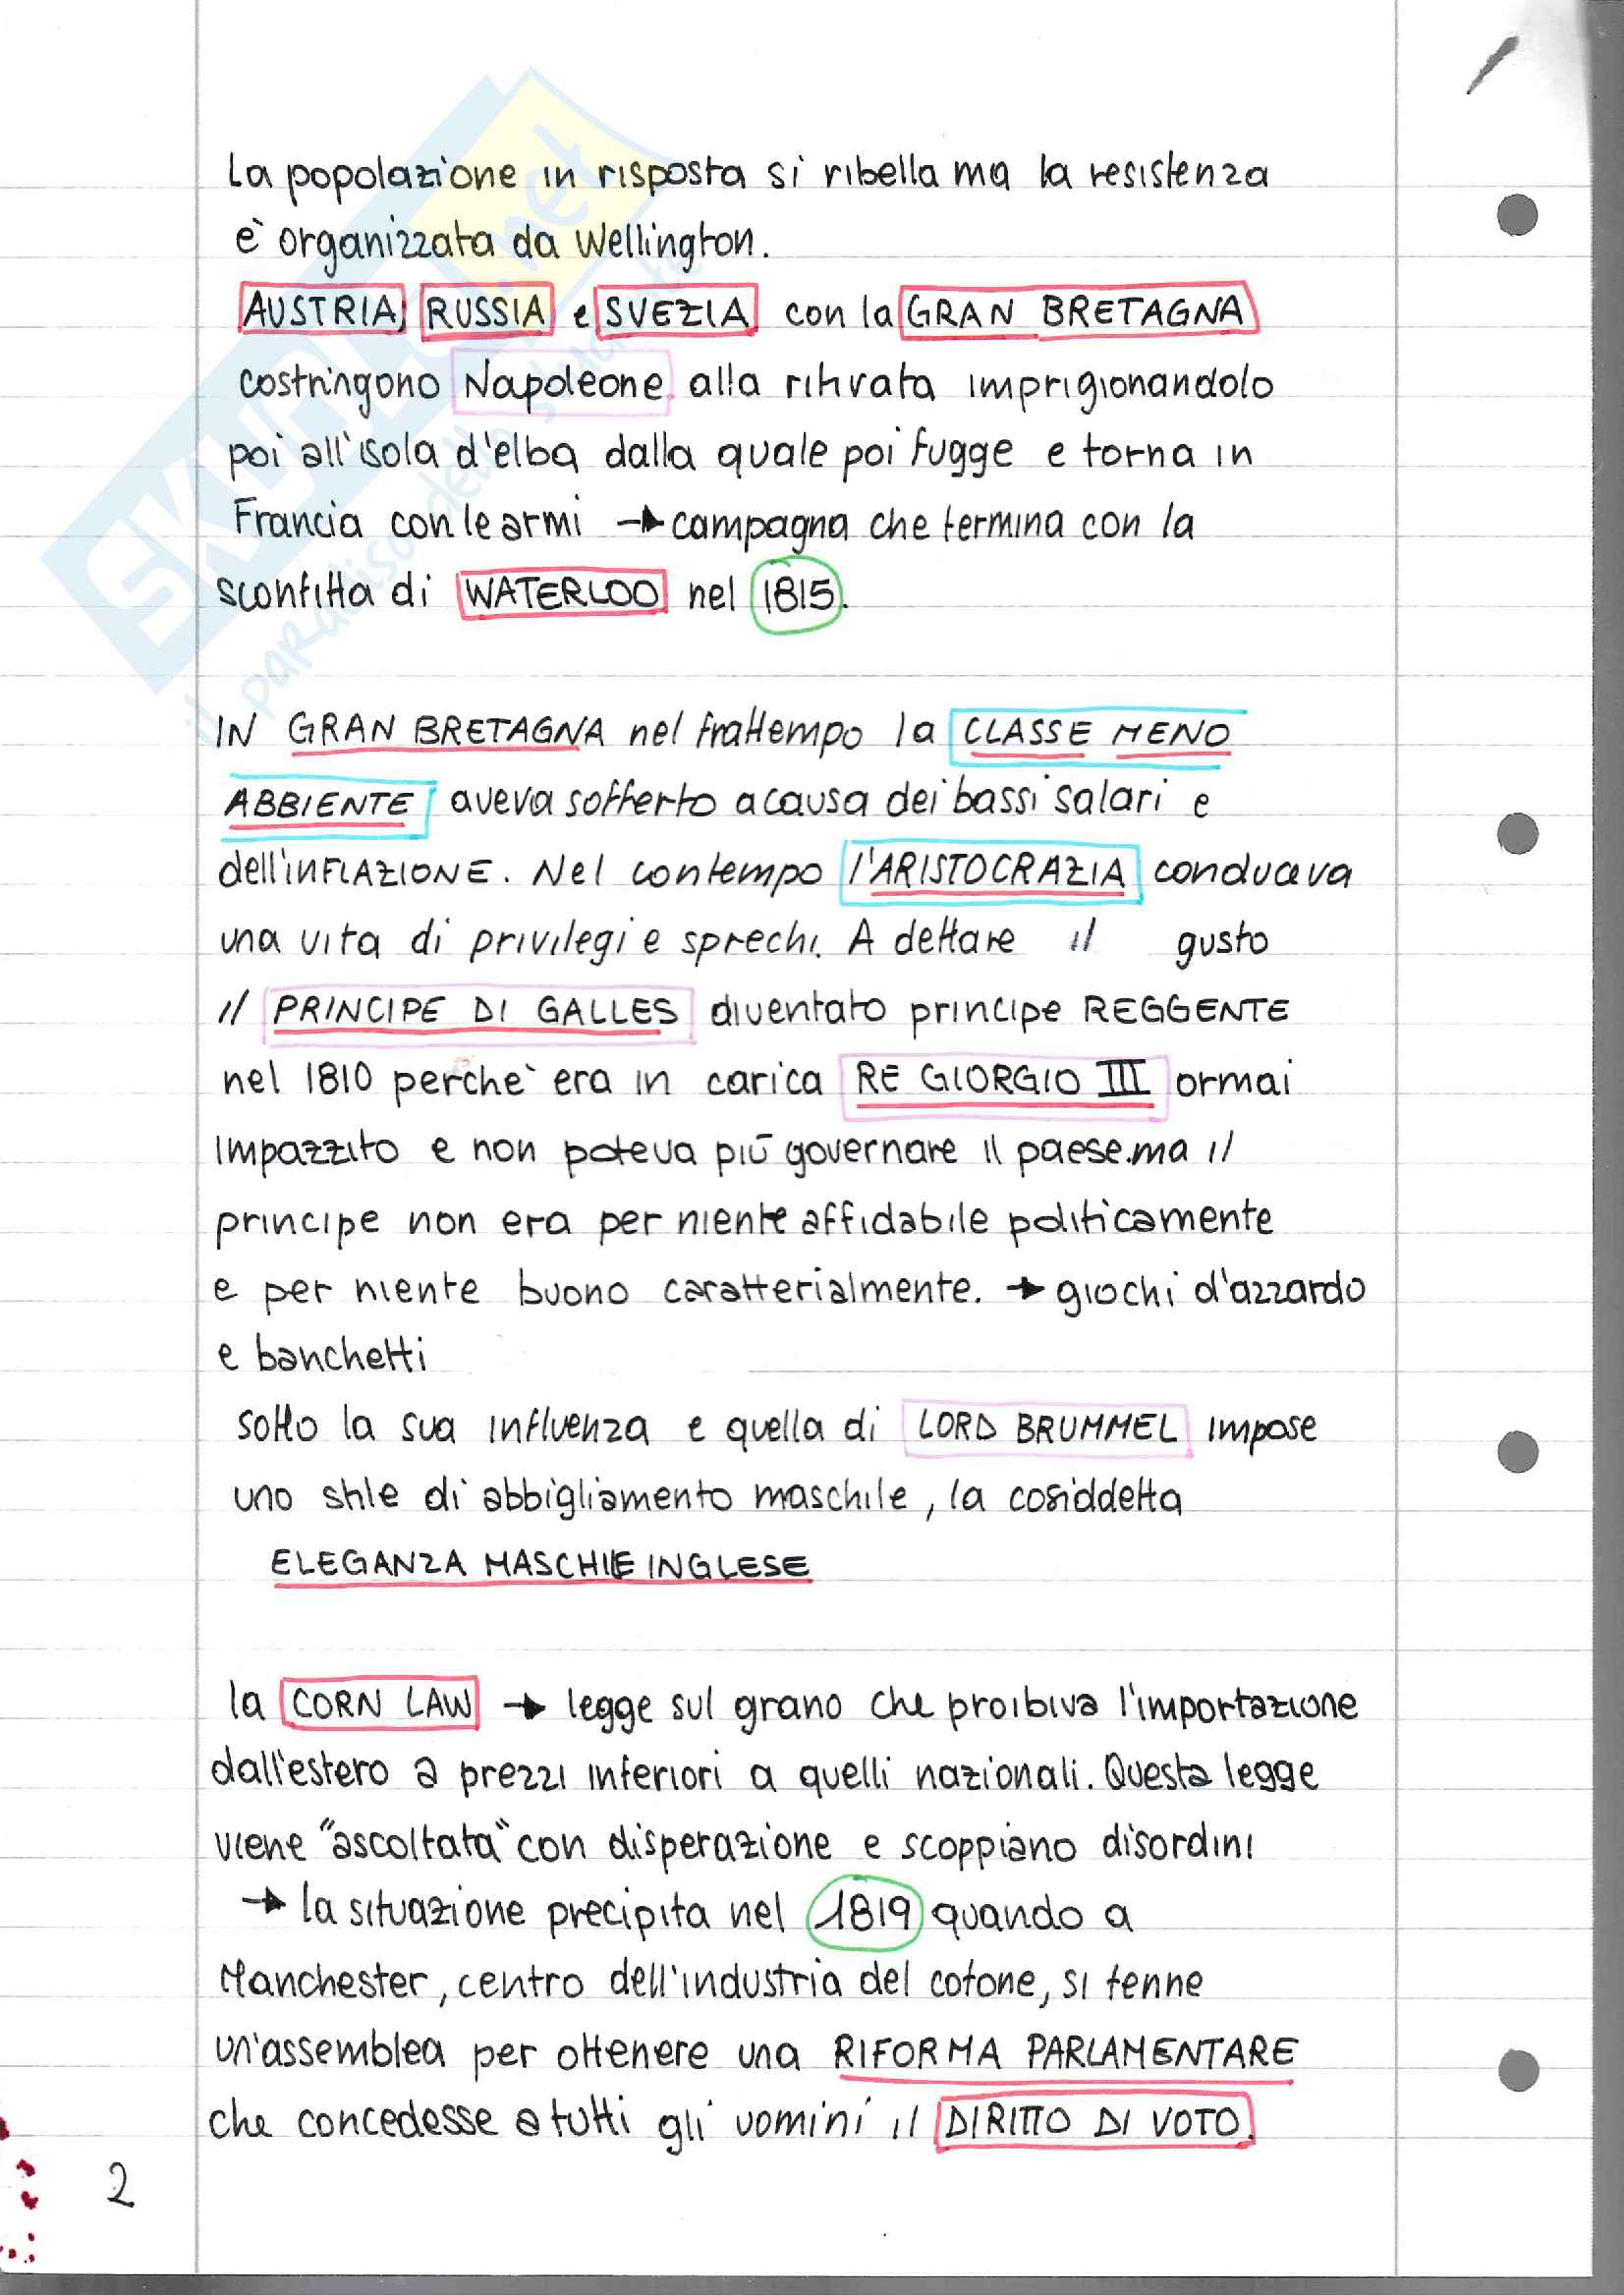 La popolazione in risposta si ribella ma la resistenza
è organizzata da Wellington.
AUSTRIA, RUSSIA e SVEZIA con la GRAN BRETAGNA
costringono Napoleone alla ritirata imprigionandolo
poi all'isola d'elba dalla quale poi fugge e torna in
Francia con le armi → campagna che termina con la
sconfitta di WATERLOO nel 1815.
IN GRAN BRETAGNA nel frattempo la CLASSE MENO
ABBIENTE aveva sofferto a causa dei bassi salari e
dell'INFLAZIONE. Nel contempo l'ARISTOCRAZIA conduceva
una vita di privilegi e sprechi. A dettare il gusto
il PRINCIPE DI GALLES diventato principe REGGENTE
nel 1810 perchè era in carica RE GIORGIO III ormai
impazzito e non poteva più governare il paese.ma il
principe non era per niente affidabile politicamente
e per niente buono caratterialmente. → giochi d'azzardo
e banchetti
sotto la sua influenza e quella di LORD BRUMMEL impose
uno stile di abbigliamento maschile, la cosiddetta
ELEGANZA MASCHILE INGLESE
la CORN LAW → legge sul grano che proibiva l'importazione
dall'estero a prezzi inferiori a quelli nazionali. Questa legge
viene "ascoltata" con disperazione e scoppiano disordini
→ la situazione precipita nel 1819 quando a
Manchester, centro dell'industria del cotone, si tenne
un'assemblea per ottenere una RIFORMA PARLAMENTARE
che concedesse a tutti gli uomini il DIRITTO DI VOTO.
2
SKUOLA.net
il paradiso dello studente